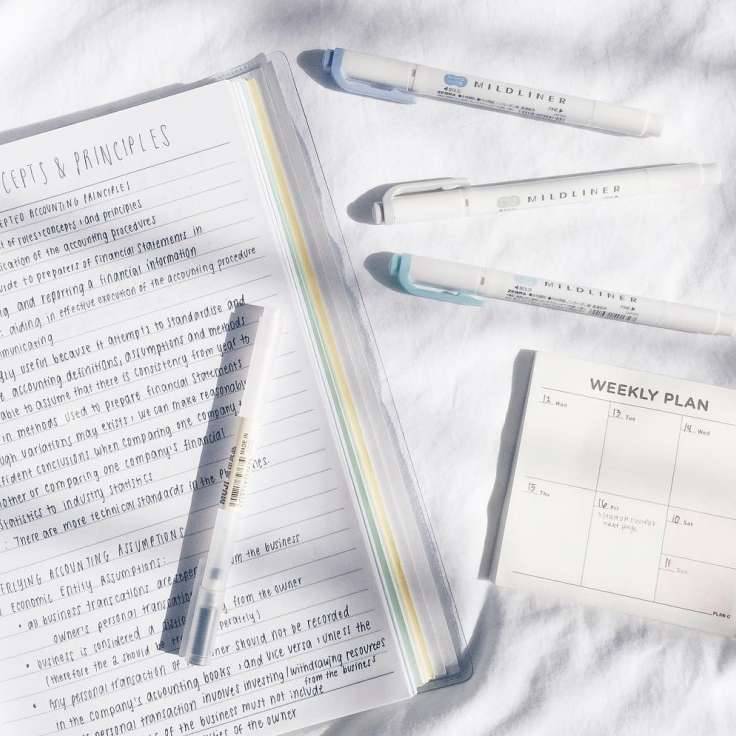 CEPTS & PRINCIPLES
EPTED ACCOUNTING PRINCIPLES
t of rules, concepts, and principles
ication of the accounting procedures
uide to preparers of financial statements in
ng and reporting a financial information
aiding in effective execution of the accounting procedure
mmunicating
useful because it attempts to standardise and
e accounting definitions, assumptions and methods
able to assume that there is consistency from year to
in methods used to prepare financial statements
ugh variations may exists, we can make reasonably
fident conclusions when comparing one company
nother or comparing one company's financial
statistics to industry statistics
: There are more technical standards in the
ERLYING ACCOUNTING ASSUMPTIONS
Economic Entity Assumptions:
• all business transactions are from the business
owner's personal from the owner
• business is considered a
(therefore the 2 should be
• Any personal transaction of owner should not be recorded
in the company's accounting books, and vice versa, unless the
personal transaction involves investing/withdrawing resources
from the business
of the business must not include
of the owner
MILDLINER
MILDLINER
MILDLINER
WEEKLY PLAN
12 Mon
13 Tue
14 Wed
15 Thu
16 Fri
10 Sat
11 Sun
PLAN C